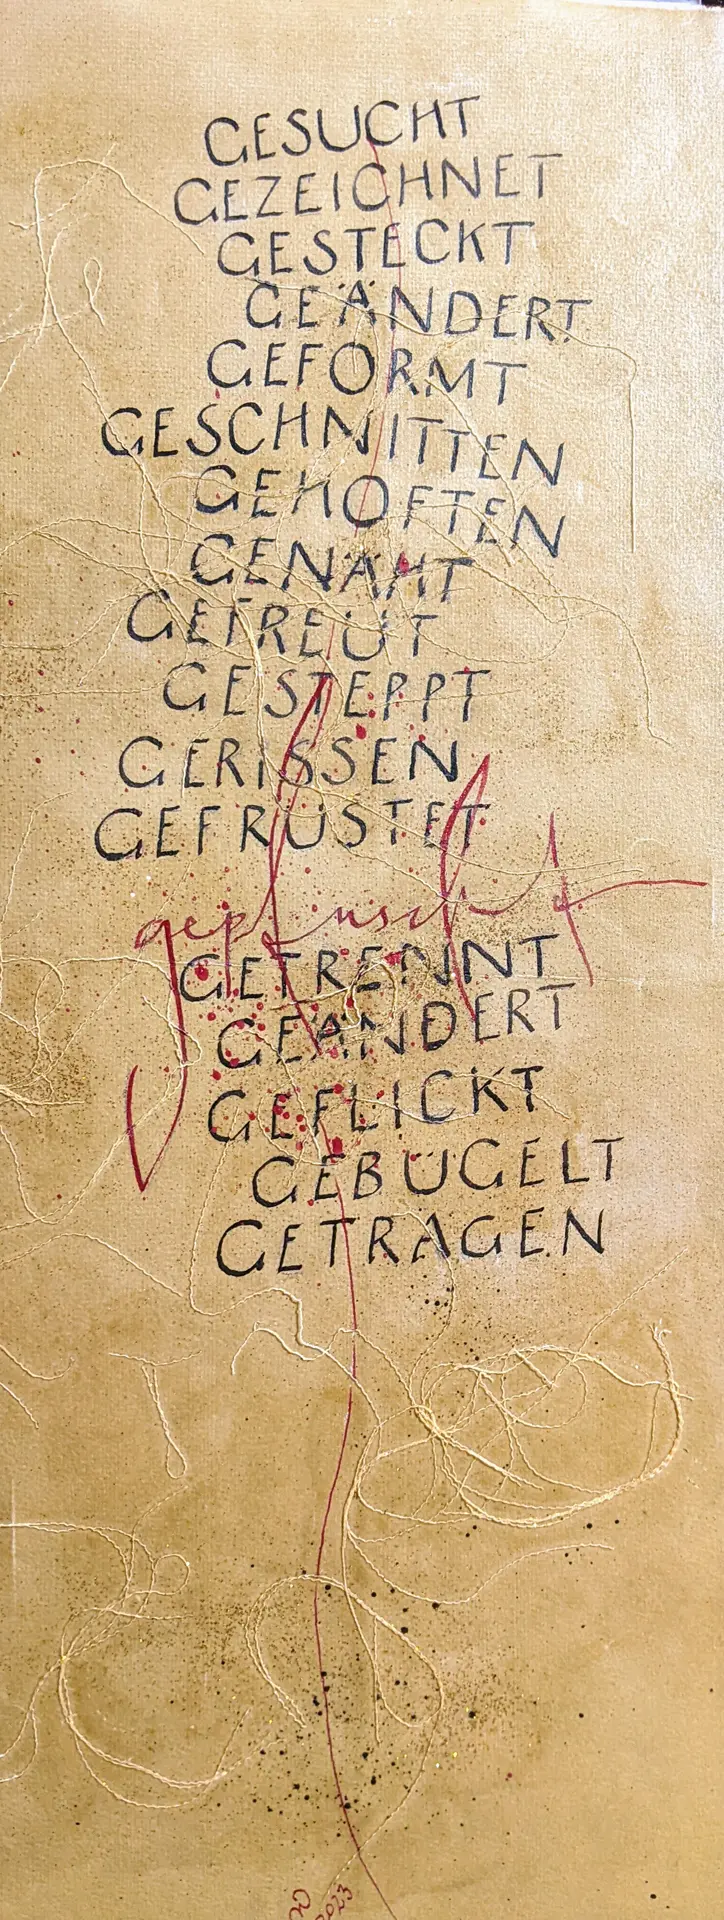 GESUCHT
GEZEICHNET
GESTECKT
GEÄNDERT
GEFORMT
GESCHNITTEN
GEHOFTEN
GENÄHT
GEFREUT
GESTEPPT
GERISSEN
GEFRÜSTET
gepfuscht
GETRENNT
GEÄNDERT
GEFLICKT
GEBÜGELT
GETRAGEN
2023